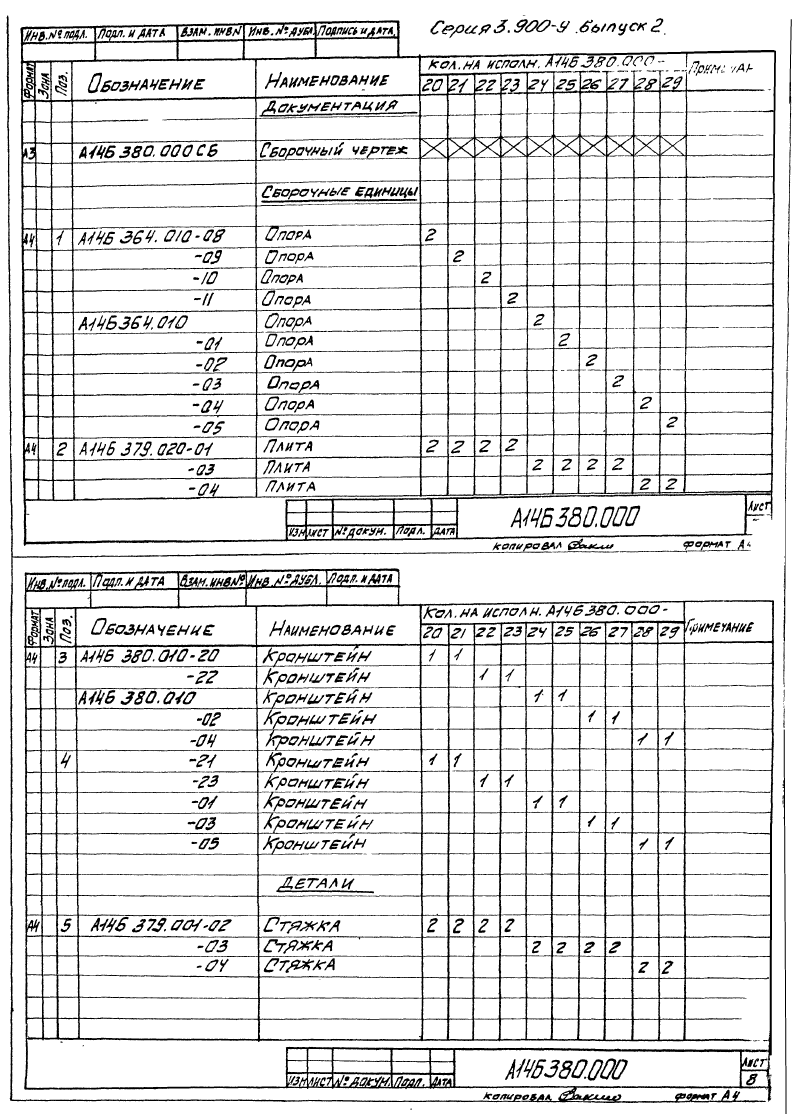 Серия 3.900-9 Выпуск 2
Инв.№ подл. Подп. и дата Взам. инв№ Инв.№ дубл Подпись и дата
Формат Зона Поз. Обозначение Наименование Кол. на исполн. А14Б380.000-
20 21 22 23 24 25 26 27 28 29
Документация
А3 А14Б 380.000 СБ Сборочный чертеж
Сборочные единицы
А4 1 А14Б 364.010-08 Опора 2
-09 Опора 2
-10 Опора 2
-11 Опора 2
А14Б364.010 Опора 2
-01 Опора 2
-02 Опора 2
-03 Опора 2
-04 Опора 2
-05 Опора 2
А4 2 А14Б 379.020-01 Плита 2 2 2 2
-03 Плита 2 2 2 2
-04 Плита 2 2
Изм Лист № докум. Подп. Дата А14Б380.000 Лист
Копировал Формат А4
Инв.№ подл. Подп. и дата Взам. инв№ Инв.№ дубл. Подп. и дата
Формат Зона Поз. Обозначение Наименование Кол. на исполн. А14Б380.000- Примечание
20 21 22 23 24 25 26 27 28 29
А4 3 А14Б 380.010-20 Кронштейн 1 1
-22 Кронштейн 1 1
А14Б 380.010 Кронштейн 1 1
-02 Кронштейн 1 1
-04 Кронштейн 1 1
4 -21 Кронштейн 1 1
-23 Кронштейн 1 1
-01 Кронштейн 1 1
-03 Кронштейн 1 1
-05 Кронштейн 1 1
Детали
А4 5 А14Б 379.001-02 Стяжка 2 2 2 2
-03 Стяжка 2 2 2 2
-04 Стяжка 2 2
Изм Лист № докум. Подп. Дата А14Б380.000 Лист
8
Копировал Формат А4